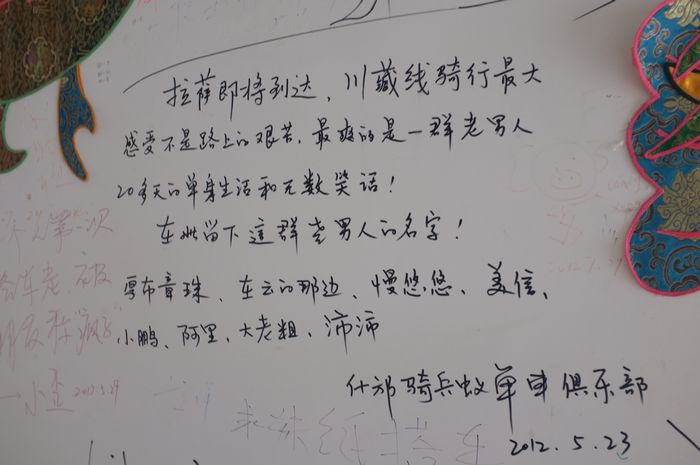 拉萨即将到达，川藏线骑行最大
感受不是路上的艰苦，最爽的是一群老男人
20多天的单身生活和无数笑话！
在此留下这群老男人的名字！
在云的那边、慢悠悠、美信、
小鹏、阿里、大老粗、沛沛
什邡骑兵蚁单车俱乐部
2012.5.23
第一次
小
2012.5.29